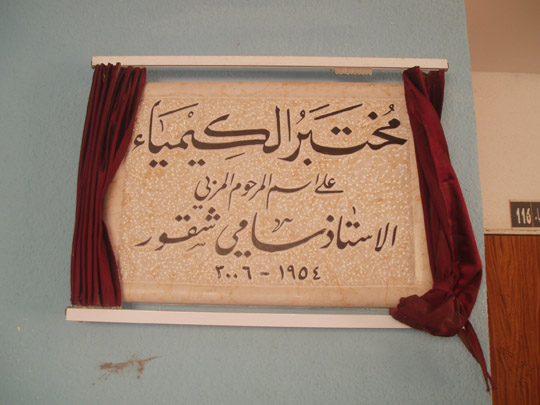 مُختبَرُ الكِيمْيَاء
على اسم المرحوم المربي
الاستاذ سامي شقور
١٩٥٤ - ٢٠٠٦
116